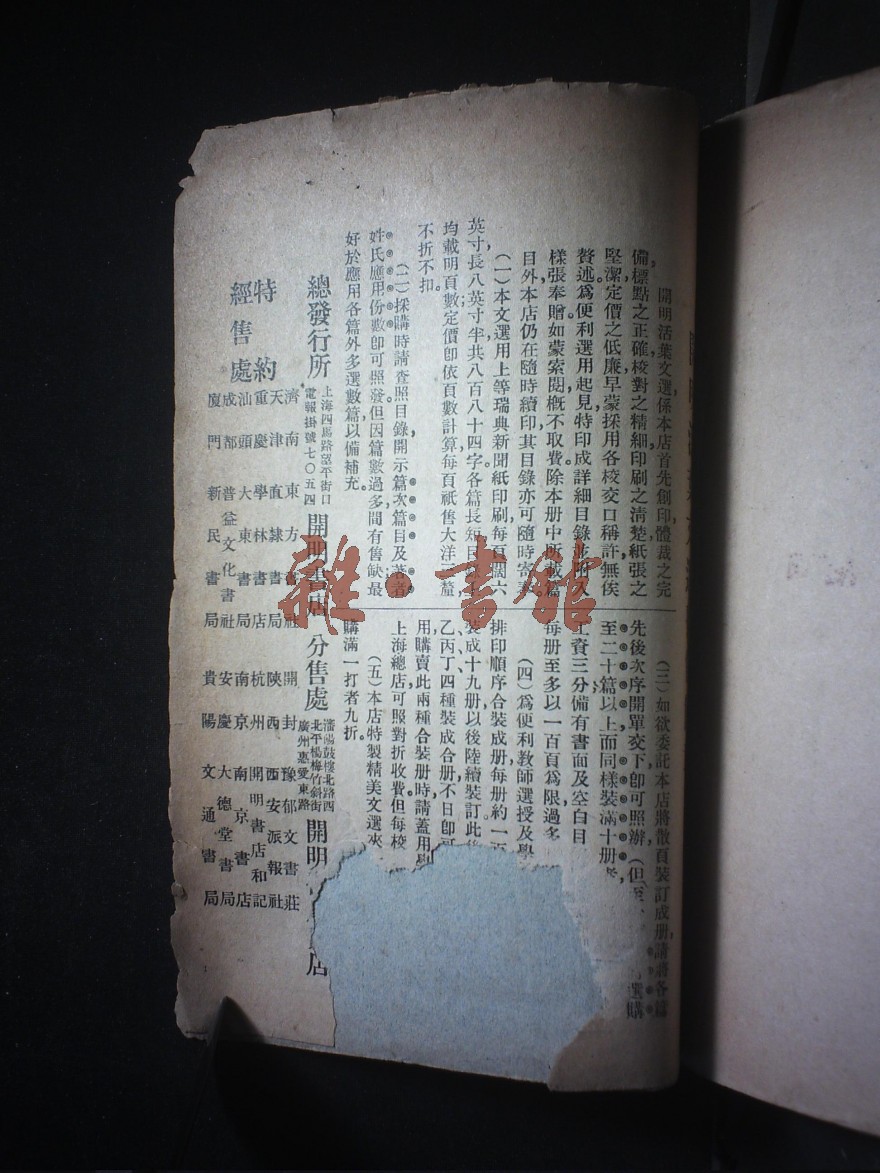 開明活葉文選係本店首先創印體裁之完
備標點之正確校對之精細印刷之清楚紙張之
堅潔定價之低廉早蒙採用各校交口稱許無俟
贅述爲便利選用起見特印成詳細目錄並附入
樣張奉贈如蒙索閱概不取費除本册中所載篇
目外本店仍在隨時續印其目錄亦可隨時寄奉
(一)本文選用上等瑞典新聞紙印刷每頁闊六
英寸長八英寸半共八百八十四字各篇長短
均載明頁數定價卽依頁數計算每頁祗售大洋 釐
不折不扣。
(二)採購時請查照目錄開示篇次篇目及著者
姓氏應用份數卽可照發但因篇數過多間有售缺最
好於應用各篇外多選數篇以備補充。
(三)如欲委託本店將散頁裝訂成册請將各篇
先後次序開單交下卽可照辦(但至 選購
至二十篇以上而同樣裝滿十册
工資三分備有書面及空白目
每册至多以一百頁爲限過多
(四)爲便利教師選授及學
排印順序合裝成册每册約一百
裝成十九册以後陸續裝訂此
乙丙丁四種裝成合册不日卽可
用購賣此兩種合裝册時請蓋用
上海總店可照對折收費但每校
(五)本店特製精美文選夾
購滿一打者九折。
總發行所
上海四馬路望平街口
電報掛號七〇五四
開明書店
分售處
瀋陽鼓樓北路西
北平楊梅竹斜街
廣州惠愛東路
開明 店
特約
經售處
濟南東方書社
天津直隸書局
重慶學林書店
汕頭大東書局
成都普益文化書社
廈門新民書局
開封豫郁文書莊
陝西西安派報社
杭州開明書店和記
南京南京書店
安慶大德堂書局
貴陽文通書局
雜·書館